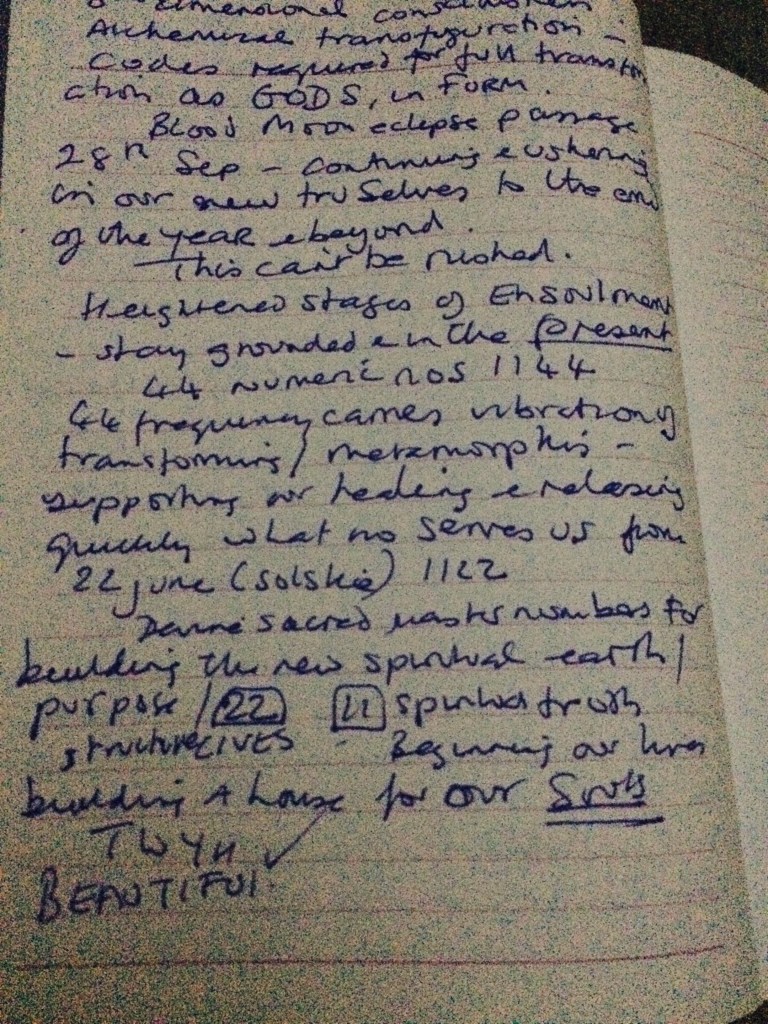 dimensional consciousness
Alchemical transfiguration –
Codes required for full transfor
ation as GODS, in FORM.
Blood Moon eclipse passage
28th Sep – continuing & ushering
in our new tru Selves to the end
of the YEAR & beyond.
This can't be rushed.
Heightened stages of Ensoulment
– stay grounded & in the Present
44 numeric nos 1144
44 frequency carries vibration of
transforming / metamorphis –
supporting our healing & releasing
quickly what no serves us from
22 june (Solstice) 1122
sacred master numbers for
building the new spiritual earth /
purpose / 22 11 spiritual truth
structure LIVES - Beginning our lives
building A house for our Souls
TWYH ✓
BEAUTIFUL.